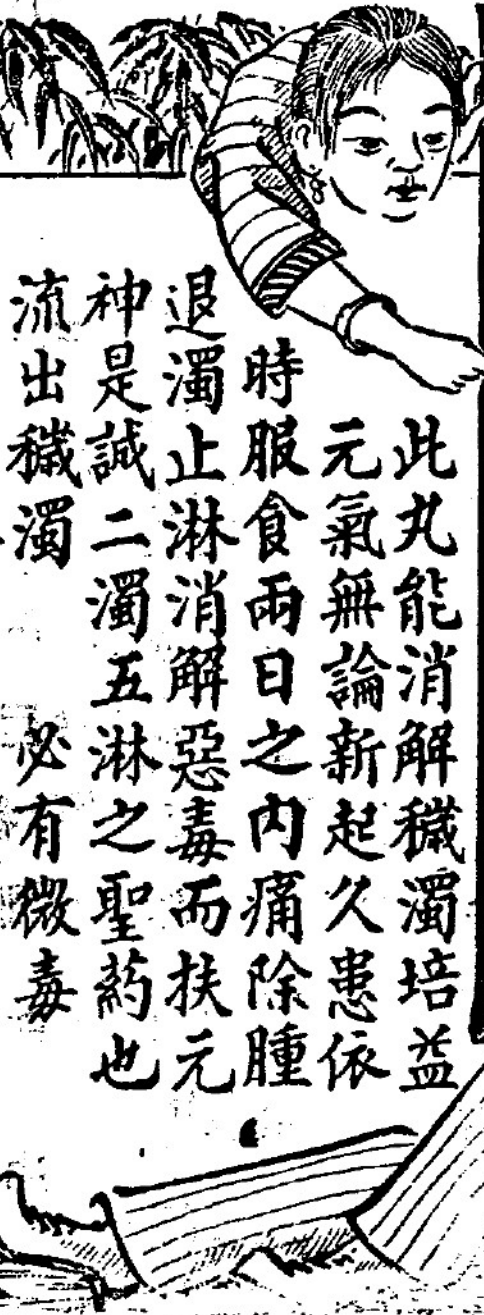 此丸能消解穢濁培益
元氣無論新起久患依
時服食兩日之內痛除腫
退濁止淋消解惡毒而扶元
神是誠二濁五淋之聖药也
流出穢濁 必有微毒